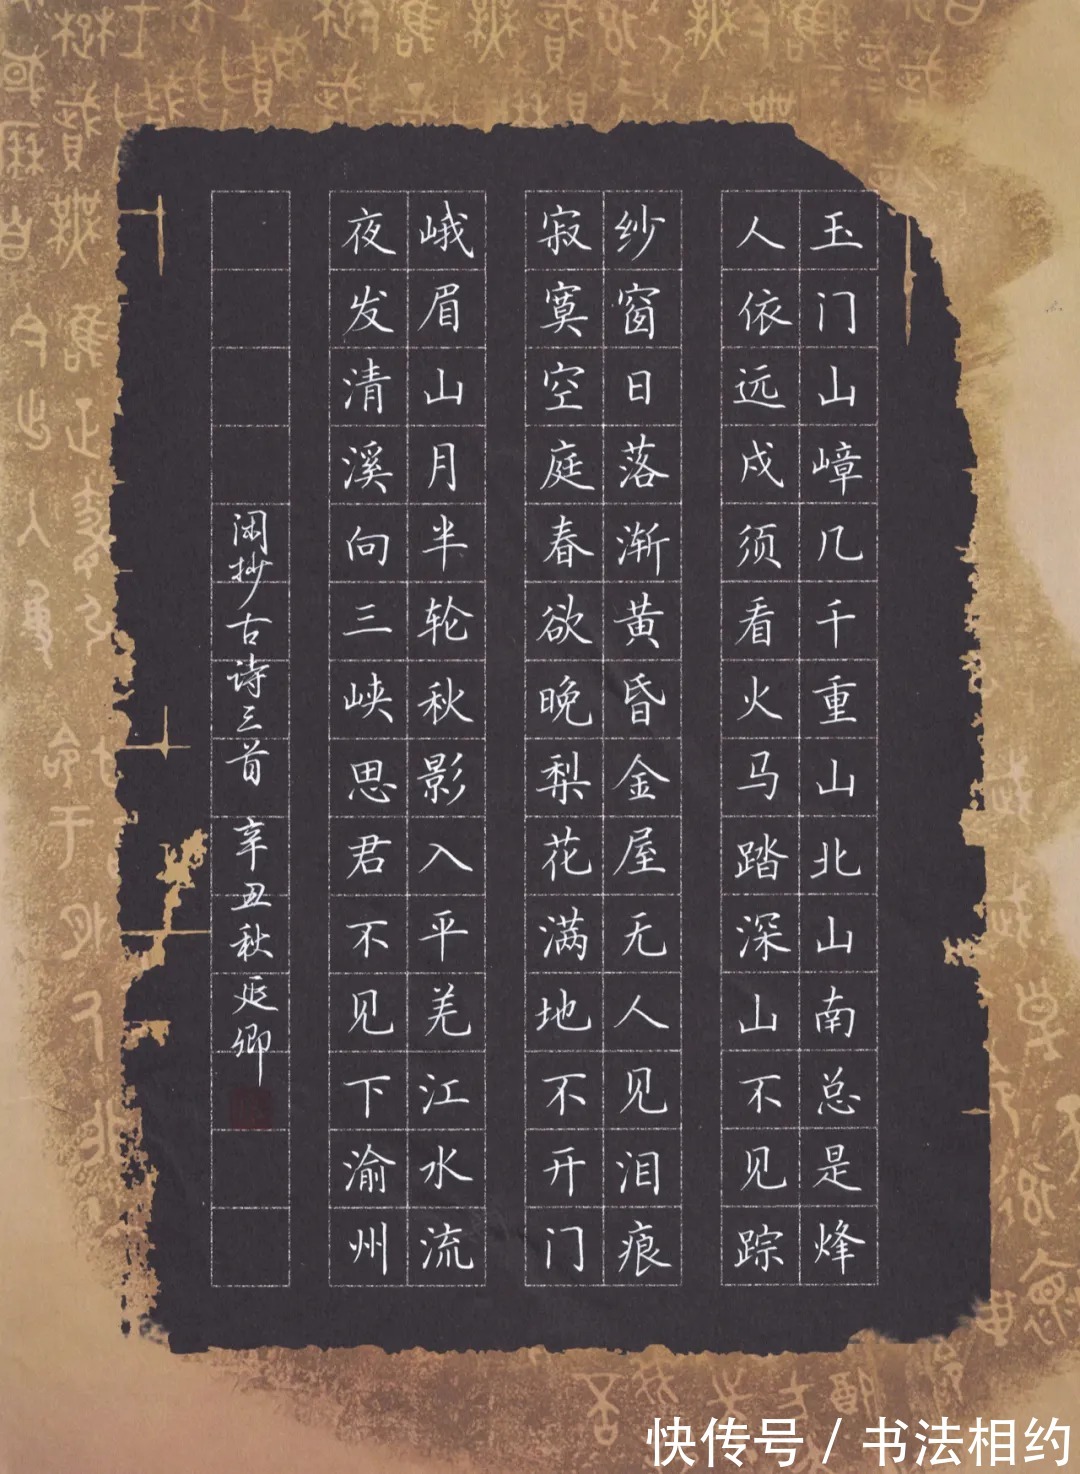 玉门山嶂几千重山北山南总是烽
人依远戍须看火马踏深山不见踪
纱窗日落渐黄昏金屋无人见泪痕
寂寞空庭春欲晚梨花满地不开门
峨眉山月半轮秋影入平羌江水流
夜发清溪向三峡思君不见下渝州
闲抄古诗三首 辛丑秋延卿
快传号/书法相约